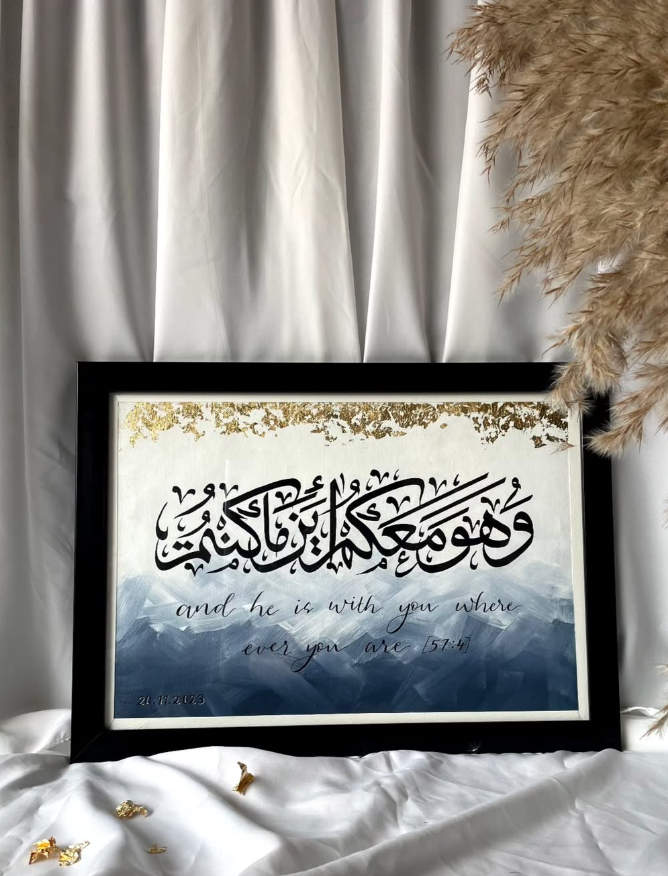 وَهُوَ مَعَكُمْ أَيْنَ مَا كُنتُمْ
and he is with you where
ever you are [57:4]
20.11.2023